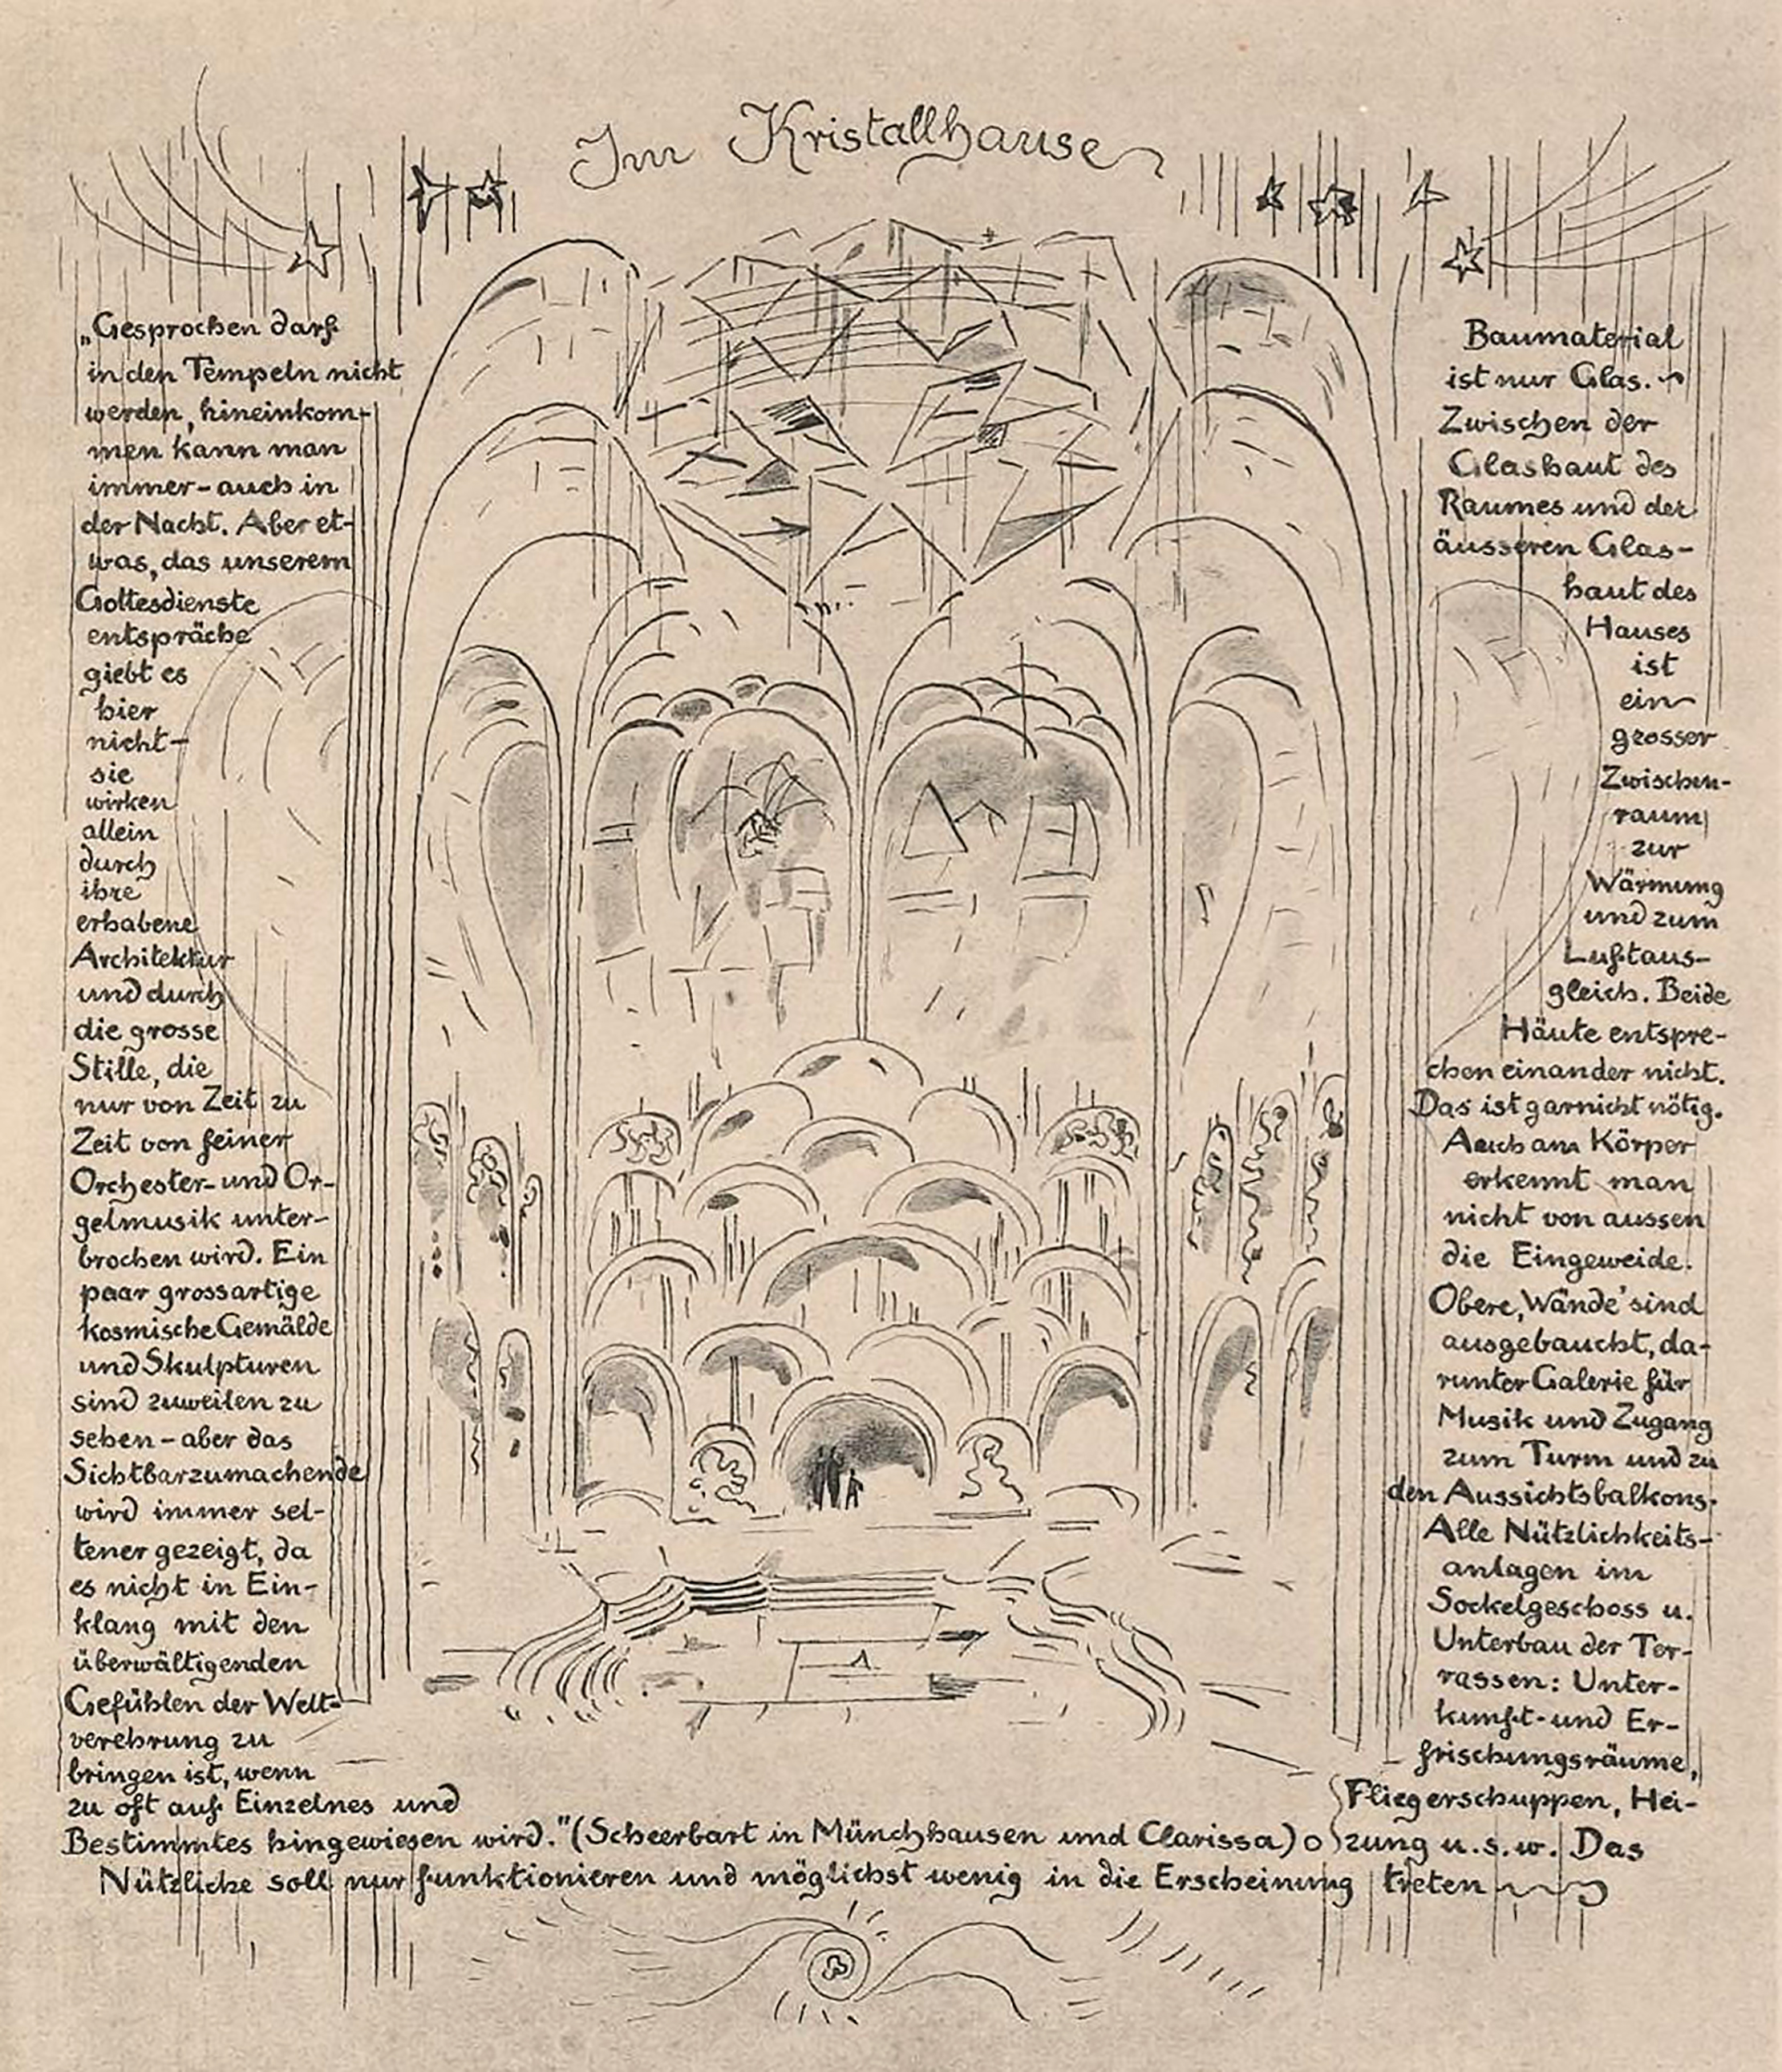 Im Kristallhause
„Gesprochen darf
in den Tempeln nicht
werden, hineinkom-
men kann man
immer - auch in
der Nacht. Aber et-
was, das unserem
Gottesdienste
entspräche
giebt es
hier
nicht -
sie
wirken
allein
durch
ihre
erhabene
Architektur
und durch
die grosse
Stille, die
nur von Zeit zu
Zeit von feiner
Orchester- und Or-
gelmusik unter-
brochen wird. Ein
paar grossartige
kosmische Gemälde
und Skulpturen
sind zuweilen zu
sehen - aber das
Sichtbarzumachende
wird immer sel-
tener gezeigt, da
es nicht in Ein-
klang mit den
überwältigenden
Gefühlen der Welt-
verehrung zu
bringen ist, wenn
zu oft auf Einzelnes und
Bestimmtes hingewiesen wird." (Scheerbart in Münchhausen und Clarissa) o
Baumaterial
ist nur Glas. ~
Zwischen der
Glashaut des
Raumes und der
äusseren Glas-
haut des
Hauses
ist
ein
grosser
Zwischen-
raum
zur
Wärmung
und zum
Luftaus-
gleich. Beide
Häute entspre-
chen einander nicht.
Das ist garnicht nötig.
Auch am Körper
erkennt man
nicht von aussen
die Eingeweide.
Obere ,Wände' sind
ausgebaucht, da-
runter Galerie für
Musik und Zugang
zum Turm und zu
den Aussichtsbalkons.
Alle Nützlichkeits-
anlagen im
Sockelgeschoss u.
Unterbau der Ter-
rassen: Unter-
kunft- und Er-
frischungsräume,
Fliegerschuppen, Hei-
zung u.s.w. Das
Nützliche soll nur funktionieren und möglichst wenig in die Erscheinung treten